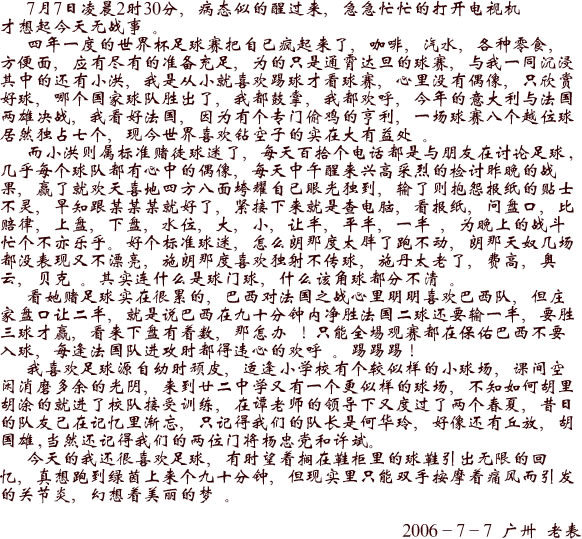 7月7日凌晨2时30分，病态似的醒过来，急急忙忙的打开电视机
才想起今天无战事。
四年一度的世界杯足球赛把自己疯起来了，咖啡，汽水，各种零食，
方便面，应有尽有的准备充足，为的只是通宵达旦的球赛，与我一同沉浸
其中的还有小洪，我是从小就喜欢踢球才看球赛，心里没有偶像，只欣赏
好球，哪个国家球队胜出了，我都鼓掌，我都欢呼，今年的意大利与法国
两雄决战，我看好法国，因为有个专门偷鸡的亨利，一场球赛八个越位球
居然独占七个，现今世界喜欢钻空子的实在大有益处。
而小洪则属标准赌徒球迷了，每天百拾个电话都是与朋友在讨论足球，
几乎每个球队都有心中的偶像，每天中午醒来兴高采烈的检讨昨晚的战
果，赢了就欢天喜地四方八面垮耀自己眼光独到，输了则抱怨报纸的贴士
不灵，早知跟某某某就好了，紧接下来就是查电脑，看报纸，问盘口，比
赔律，上盘，下盘，水位，大，小，让半，平半，一半，为晚上的战斗
忙个不亦乐乎。好个标准球迷，怎么朗那度太胖了跑不动，朗那天奴几场
都没表现又不漂亮，施朗那度喜欢独射不传球，施丹太老了，费高，奥
云，贝克。其实连什么是球门球，什么该角球都分不清。
看她赌足球实在很累的，巴西对法国之战心里明明喜欢巴西队，但庄
家盘口让二半，就是说巴西在九十分钟内净胜法国二球还要输一半，要胜
三球才赢，看来下盘有着数，那怎办！只能全场观赛都在保佑巴西不要
入球，每逢法国队进攻时都得违心的欢呼。踢踢踢！
我喜欢足球源自幼时顽皮，适逢小学校有个较似样的小球场，课间空
闲消磨多余的光阴，来到廿二中学又有一个更似样的球场，不知如何胡里
胡涂的就进了校队接受训练，在谭老师的领导下又度过了两个春夏，昔日
的队友已在记忆里渐忘，只记得我们的队长是何华玲，好像还有丘放，胡
国雄,当然还记得我们的两位门将杨忠党和许斌。
今天的我还很喜欢足球，有时望着搁在鞋柜里的球鞋引出无限的回
忆，真想跑到绿茵上来个九十分钟，但现实里只能双手按摩着痛风而引发
的关节炎，幻想着美丽的梦。
2006－7－7 广州 老表